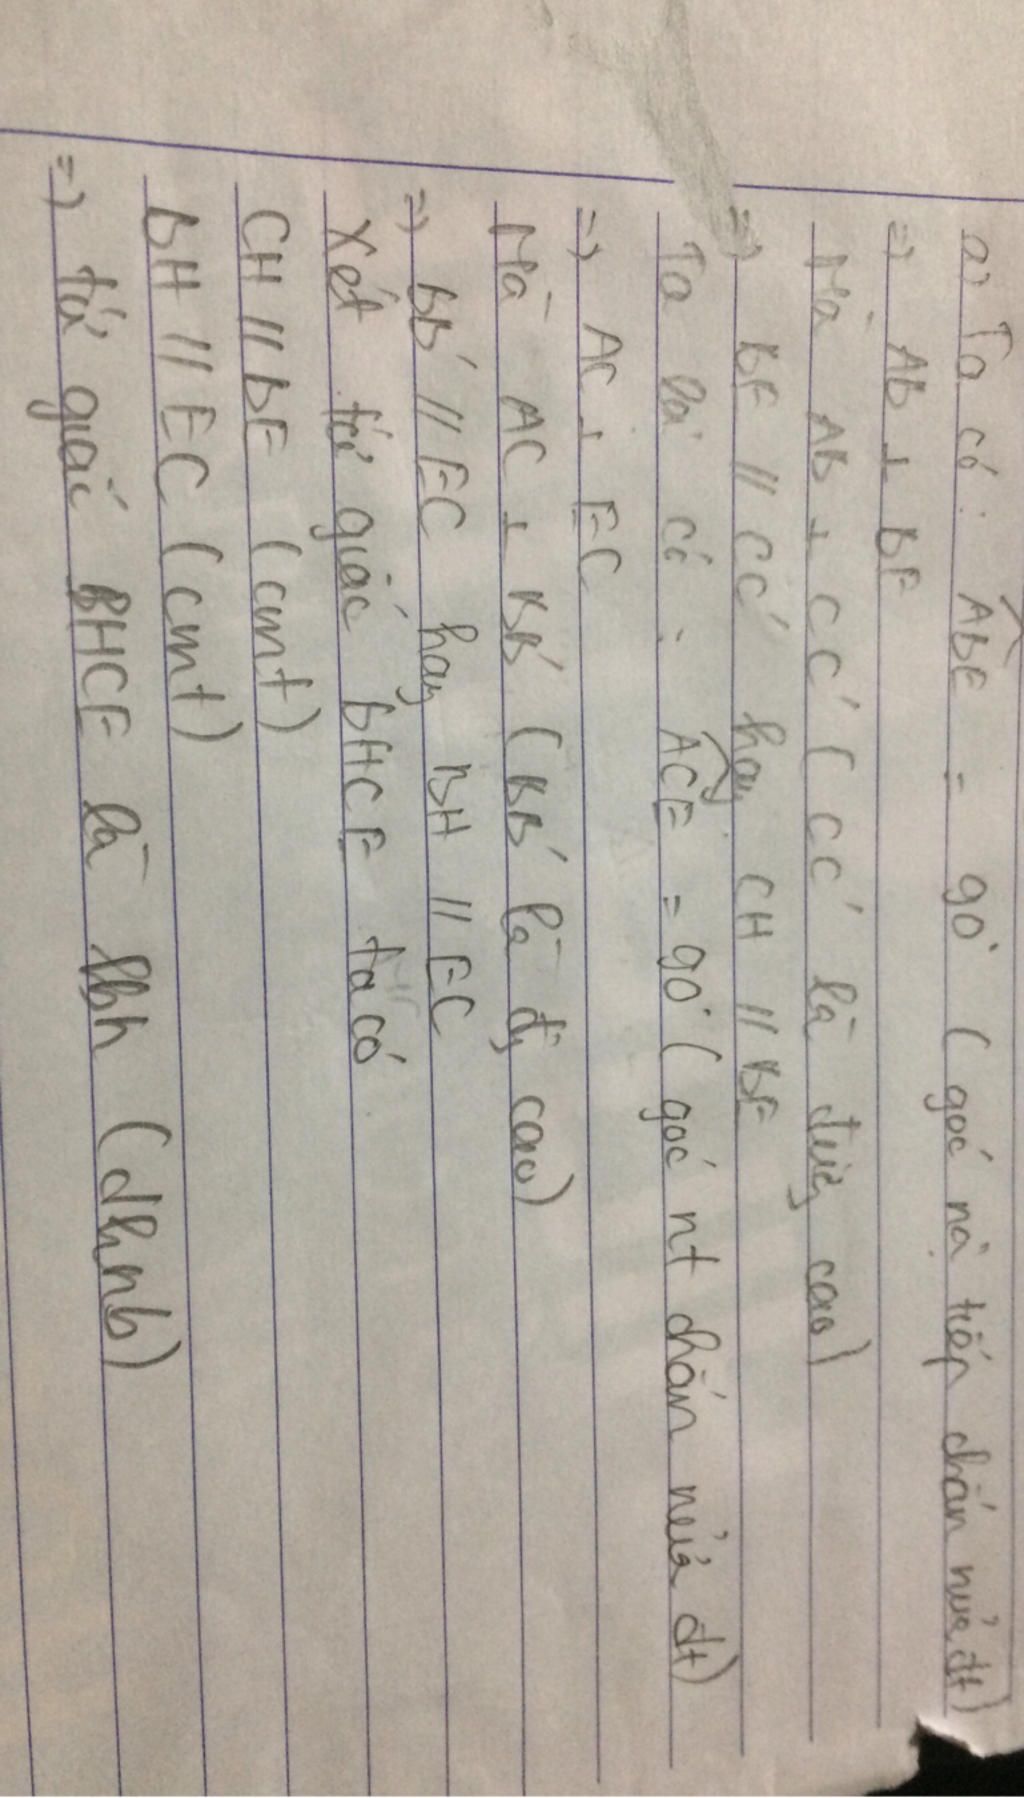 a) Ta có: ABE = 90° ( góc nộ tiếp chắn nửa đt)
=> AB ⊥ BF
Mà AB ⊥ CC' ( CC' là đường cao)
=> BF // CC' hay CH // BF
Ta lại có: ACE = 90° ( góc nt chắn nửa đt)
=> AC ⊥ EC
Mà AC ⊥ BB' ( BB' là đg cao)
=> BB' // EC hay BH // EC
Xét tứ giác BHCF ta có
CH // BF (cmt)
BH // EC (cmt)
=> tứ giác BHCF là hbh (dhnb)